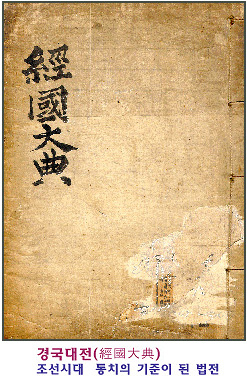 經國大典
경국대전(經國大典)
조선시대 통치의 기준이 된 법전